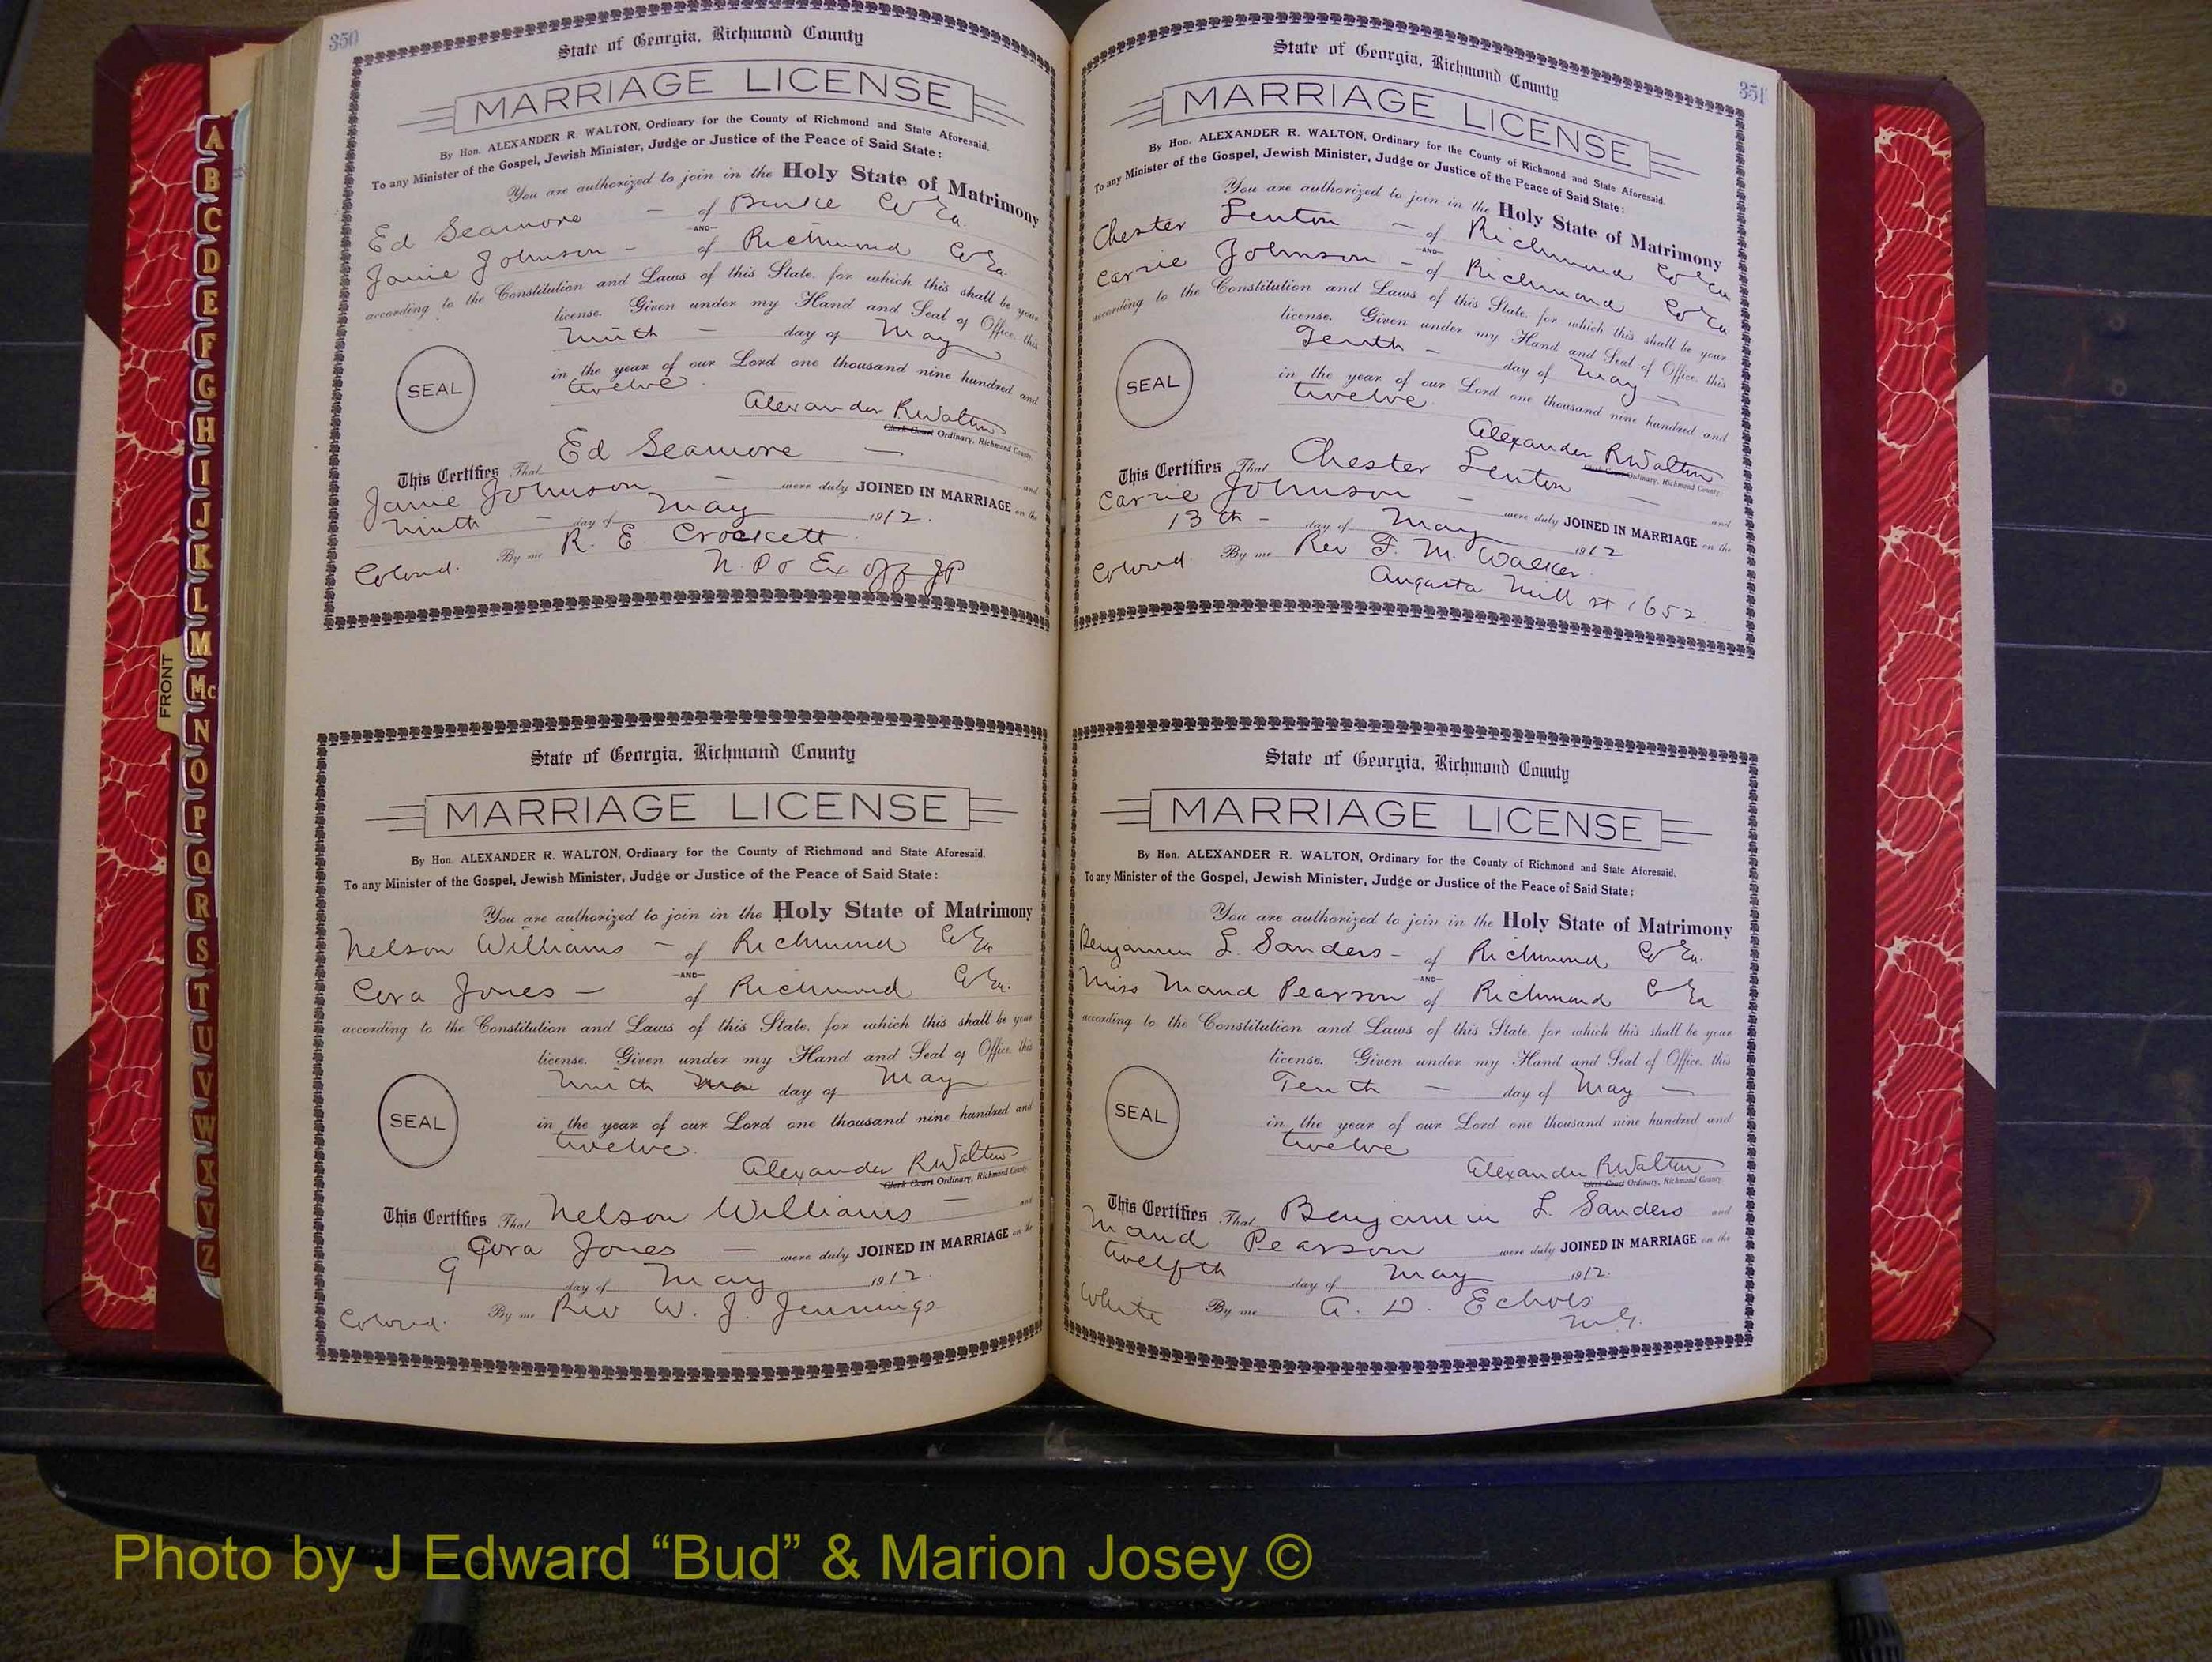 350
State of Georgia, Richmond County
MARRIAGE LICENSE
By Hon. ALEXANDER R. WALTON, Ordinary for the County of Richmond and State Aforesaid.
To any Minister of the Gospel, Jewish Minister, Judge or Justice of the Peace of Said State:
You are authorized to join in the Holy State of Matrimony
Ed Seamore - of Burke Co Ga.
-AND-
Janie Johnson - of Richmond Co Ga.
according to the Constitution and Laws of this State, for which this shall be your
license. Given under my Hand and Seal of Office, this
Ninth - day of May
in the year of our Lord one thousand nine hundred and
twelve.
SEAL
Alexander R Walton
Clerk Court Ordinary, Richmond County
This Certifies That Ed Seamore - and
Janie Johnson - were duly JOINED IN MARRIAGE on the
Ninth - day of May 1912.
By me R. E. Crockett
Colored. N. P & Ex Off JP
State of Georgia, Richmond County
MARRIAGE LICENSE
By Hon. ALEXANDER R. WALTON, Ordinary for the County of Richmond and State Aforesaid.
To any Minister of the Gospel, Jewish Minister, Judge or Justice of the Peace of Said State:
You are authorized to join in the Holy State of Matrimony
Nelson Williams - of Richmond Co Ga
-AND-
Cora Jones - of Richmond Co Ga.
according to the Constitution and Laws of this State, for which this shall be your
license. Given under my Hand and Seal of Office, this
Ninth day of May
in the year of our Lord one thousand nine hundred and
twelve.
SEAL
Alexander R Walton
Clerk Court Ordinary, Richmond County
This Certifies That Nelson Williams - and
Cora Jones - were duly JOINED IN MARRIAGE on the
9 day of May 1912.
Colored. By me Rev W. J. Jennings
351
State of Georgia, Richmond County
MARRIAGE LICENSE
By Hon. ALEXANDER R. WALTON, Ordinary for the County of Richmond and State Aforesaid.
To any Minister of the Gospel, Jewish Minister, Judge or Justice of the Peace of Said State:
You are authorized to join in the Holy State of Matrimony
Chester Lenton - of Richmond Co Ga
-AND-
Carrie Johnson - of Richmond Co Ga
according to the Constitution and Laws of this State, for which this shall be your
license. Given under my Hand and Seal of Office, this
Tenth - day of May -
in the year of our Lord one thousand nine hundred and
twelve.
SEAL
Alexander R Walton
Clerk Court Ordinary, Richmond County
This Certifies That Chester Lenton - and
Carrie Johnson - were duly JOINED IN MARRIAGE on the
13th - day of May 1912
Colored. By me Rev F. M. Walker.
Augusta Mill st 1652.
State of Georgia, Richmond County
MARRIAGE LICENSE
By Hon. ALEXANDER R. WALTON, Ordinary for the County of Richmond and State Aforesaid.
To any Minister of the Gospel, Jewish Minister, Judge or Justice of the Peace of Said State:
You are authorized to join in the Holy State of Matrimony
Benjamin L. Sanders - of Richmond Co Ga.
-AND-
Miss Maud Pearson of Richmond Co Ga
according to the Constitution and Laws of this State, for which this shall be your
license. Given under my Hand and Seal of Office, this
Tenth - day of May -
in the year of our Lord one thousand nine hundred and
twelve
SEAL
Alexander R Walton
Clerk Court Ordinary, Richmond County
This Certifies That Benjamin L. Sanders and
Maud Pearson were duly JOINED IN MARRIAGE on the
twelfth day of May 1912.
White By me A. D. Echols
M.G.
A
B
C
D
E
F
G
H
I
J
K
L
M
Mc
N
O
P
Q
R
S
T
U
V
W
X
Y
Z
FRONT
Photo by J Edward “Bud” & Marion Josey ©